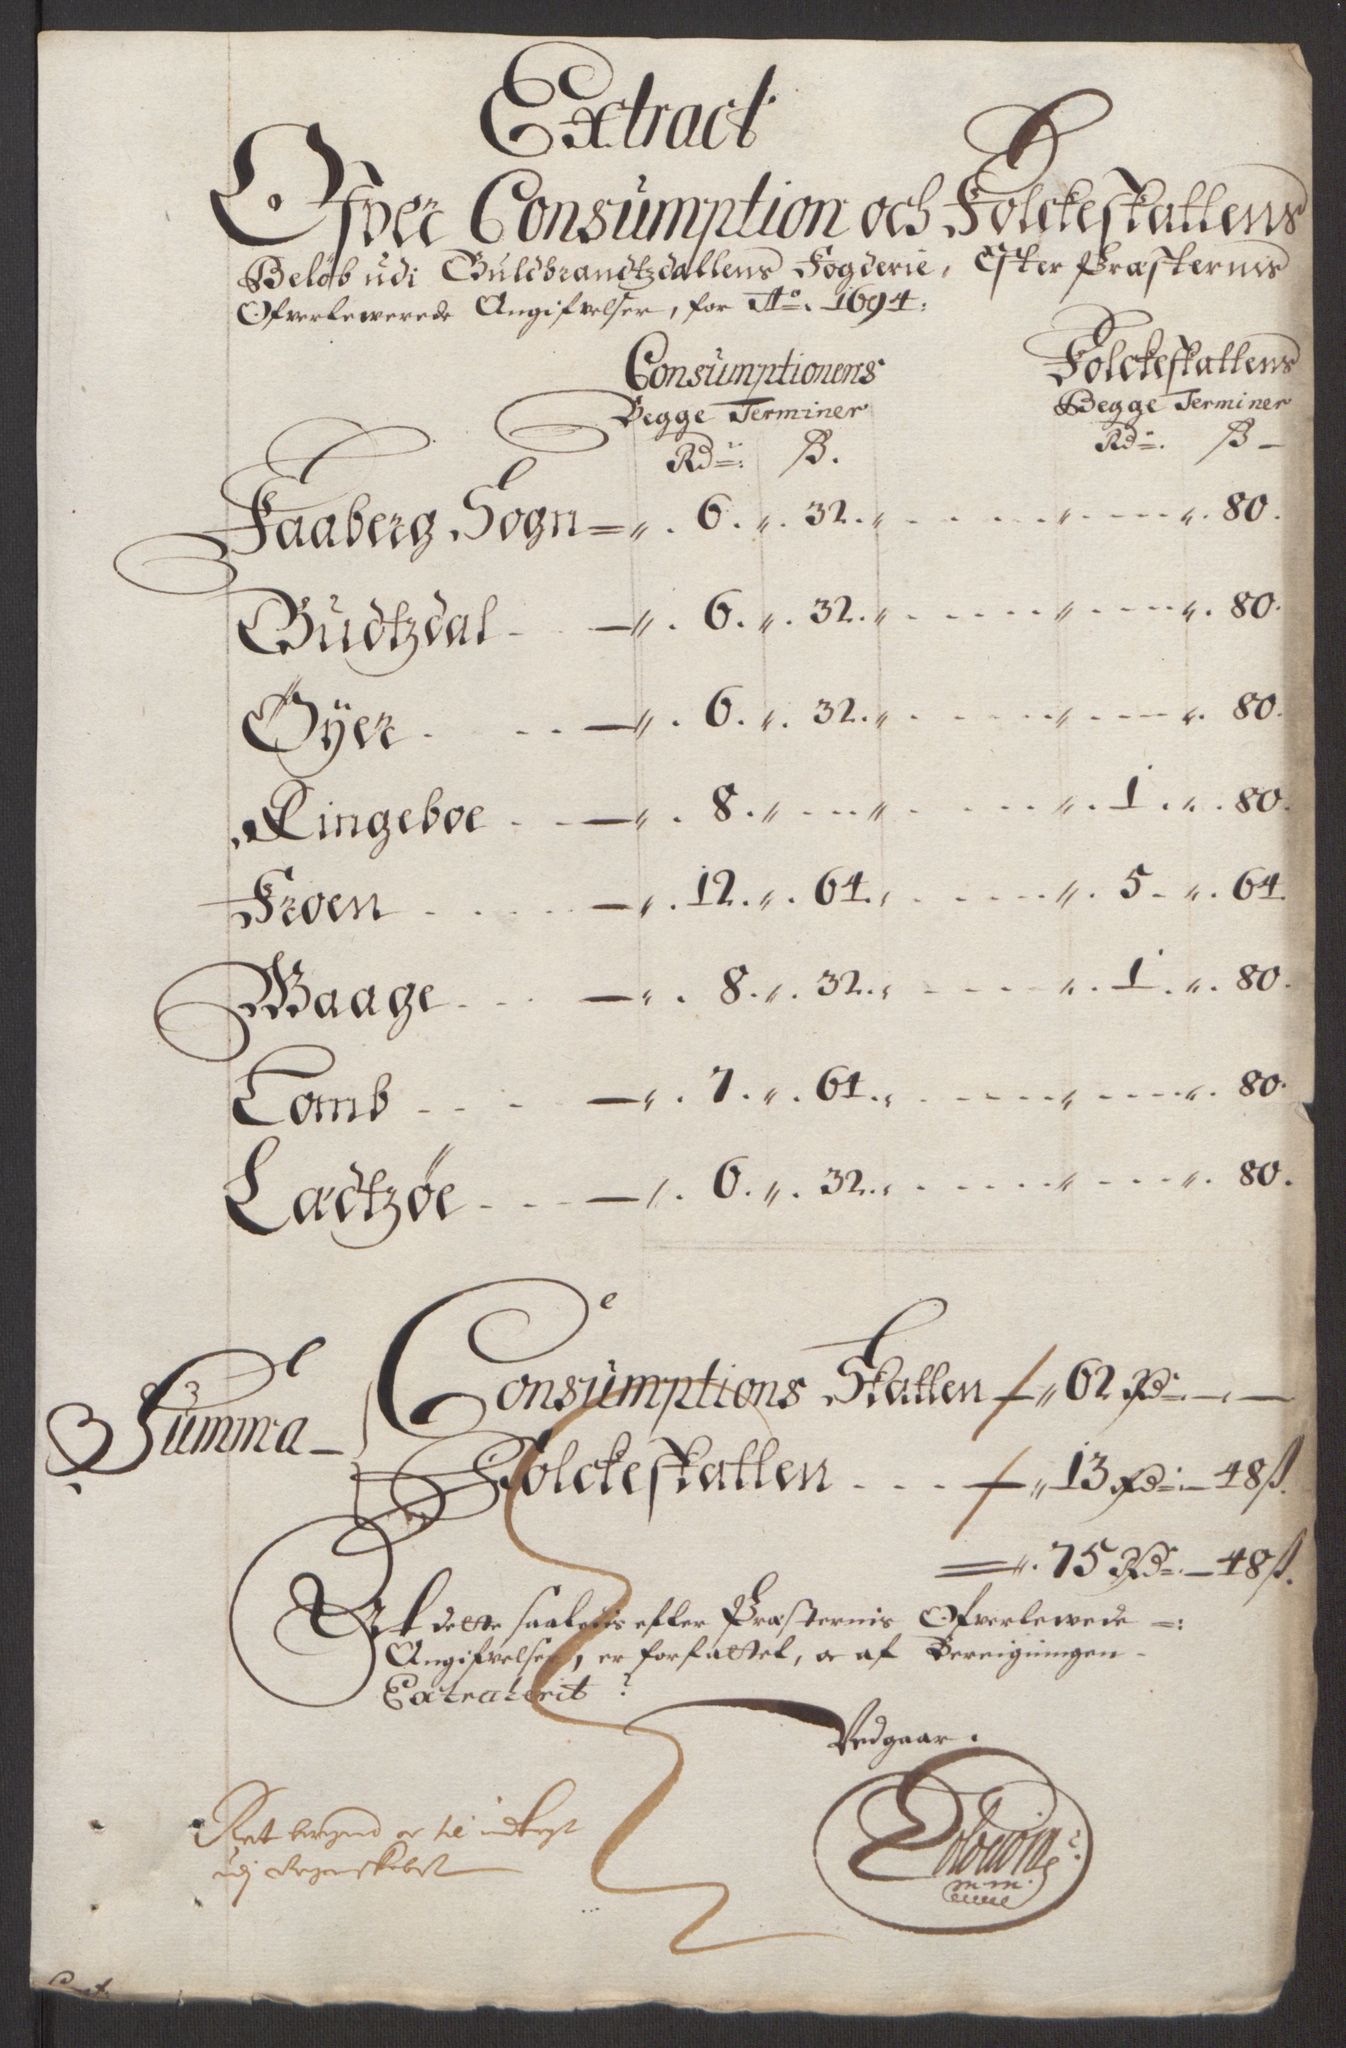 Extract
Ofver Consumption och Folckeskattens
Beløb udi Guldbrandtzdallens Fogderie, Efter Præsternis
Ofverlewerede Angifvelser, for Ao. 1694:
Consumptionens Folckeskattens
Begge Terminer Begge Terminer
Rdr: ß. Rdr. ß
Faaberg Sogn 6. 32. 80.
Gudtzdal 6. 32. 80.
Øyer 6. 32. 80.
Ringeboe 8. 1. 80.
Froen 12. 64. 5. 64.
Waage 8. 32. 1. 80.
Lomb 7. 64. 80.
Ladtzøe 6. 32. 80.
Summa
Consumptions Skatten 62 Rdr.
Folckeskatten 13 Rdr. 48ß.
75 Rdr. 48ß.
At dette saaledis efter Præsternis Ofverlewede
Angifvelser, er forfattet, oc af Bereigningen
Extraherit
Vedgaar.
m.m.
Ret og til indkegt
udj Regenskabet